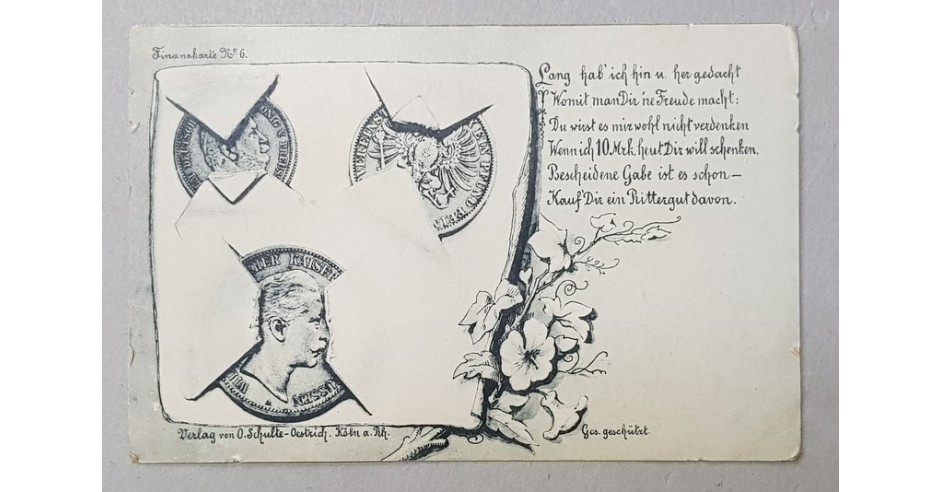 Finanzkarte No 6.
Lang hab' ich hin u. her gedacht
Womit man Dir 'ne Freude macht:
Du wirst es mir wohl nicht verdenken
Wenn ich 10 Mrk. heut Dir will schenken.
Bescheidene Gabe ist es schon —
Kauf' Dir ein Rittergut davon.
VEREIN
EIN PFUND
TER KAISER
Verlag von O. Schulte-Oestrich. Köln a. Rh.
Ges. geschützt